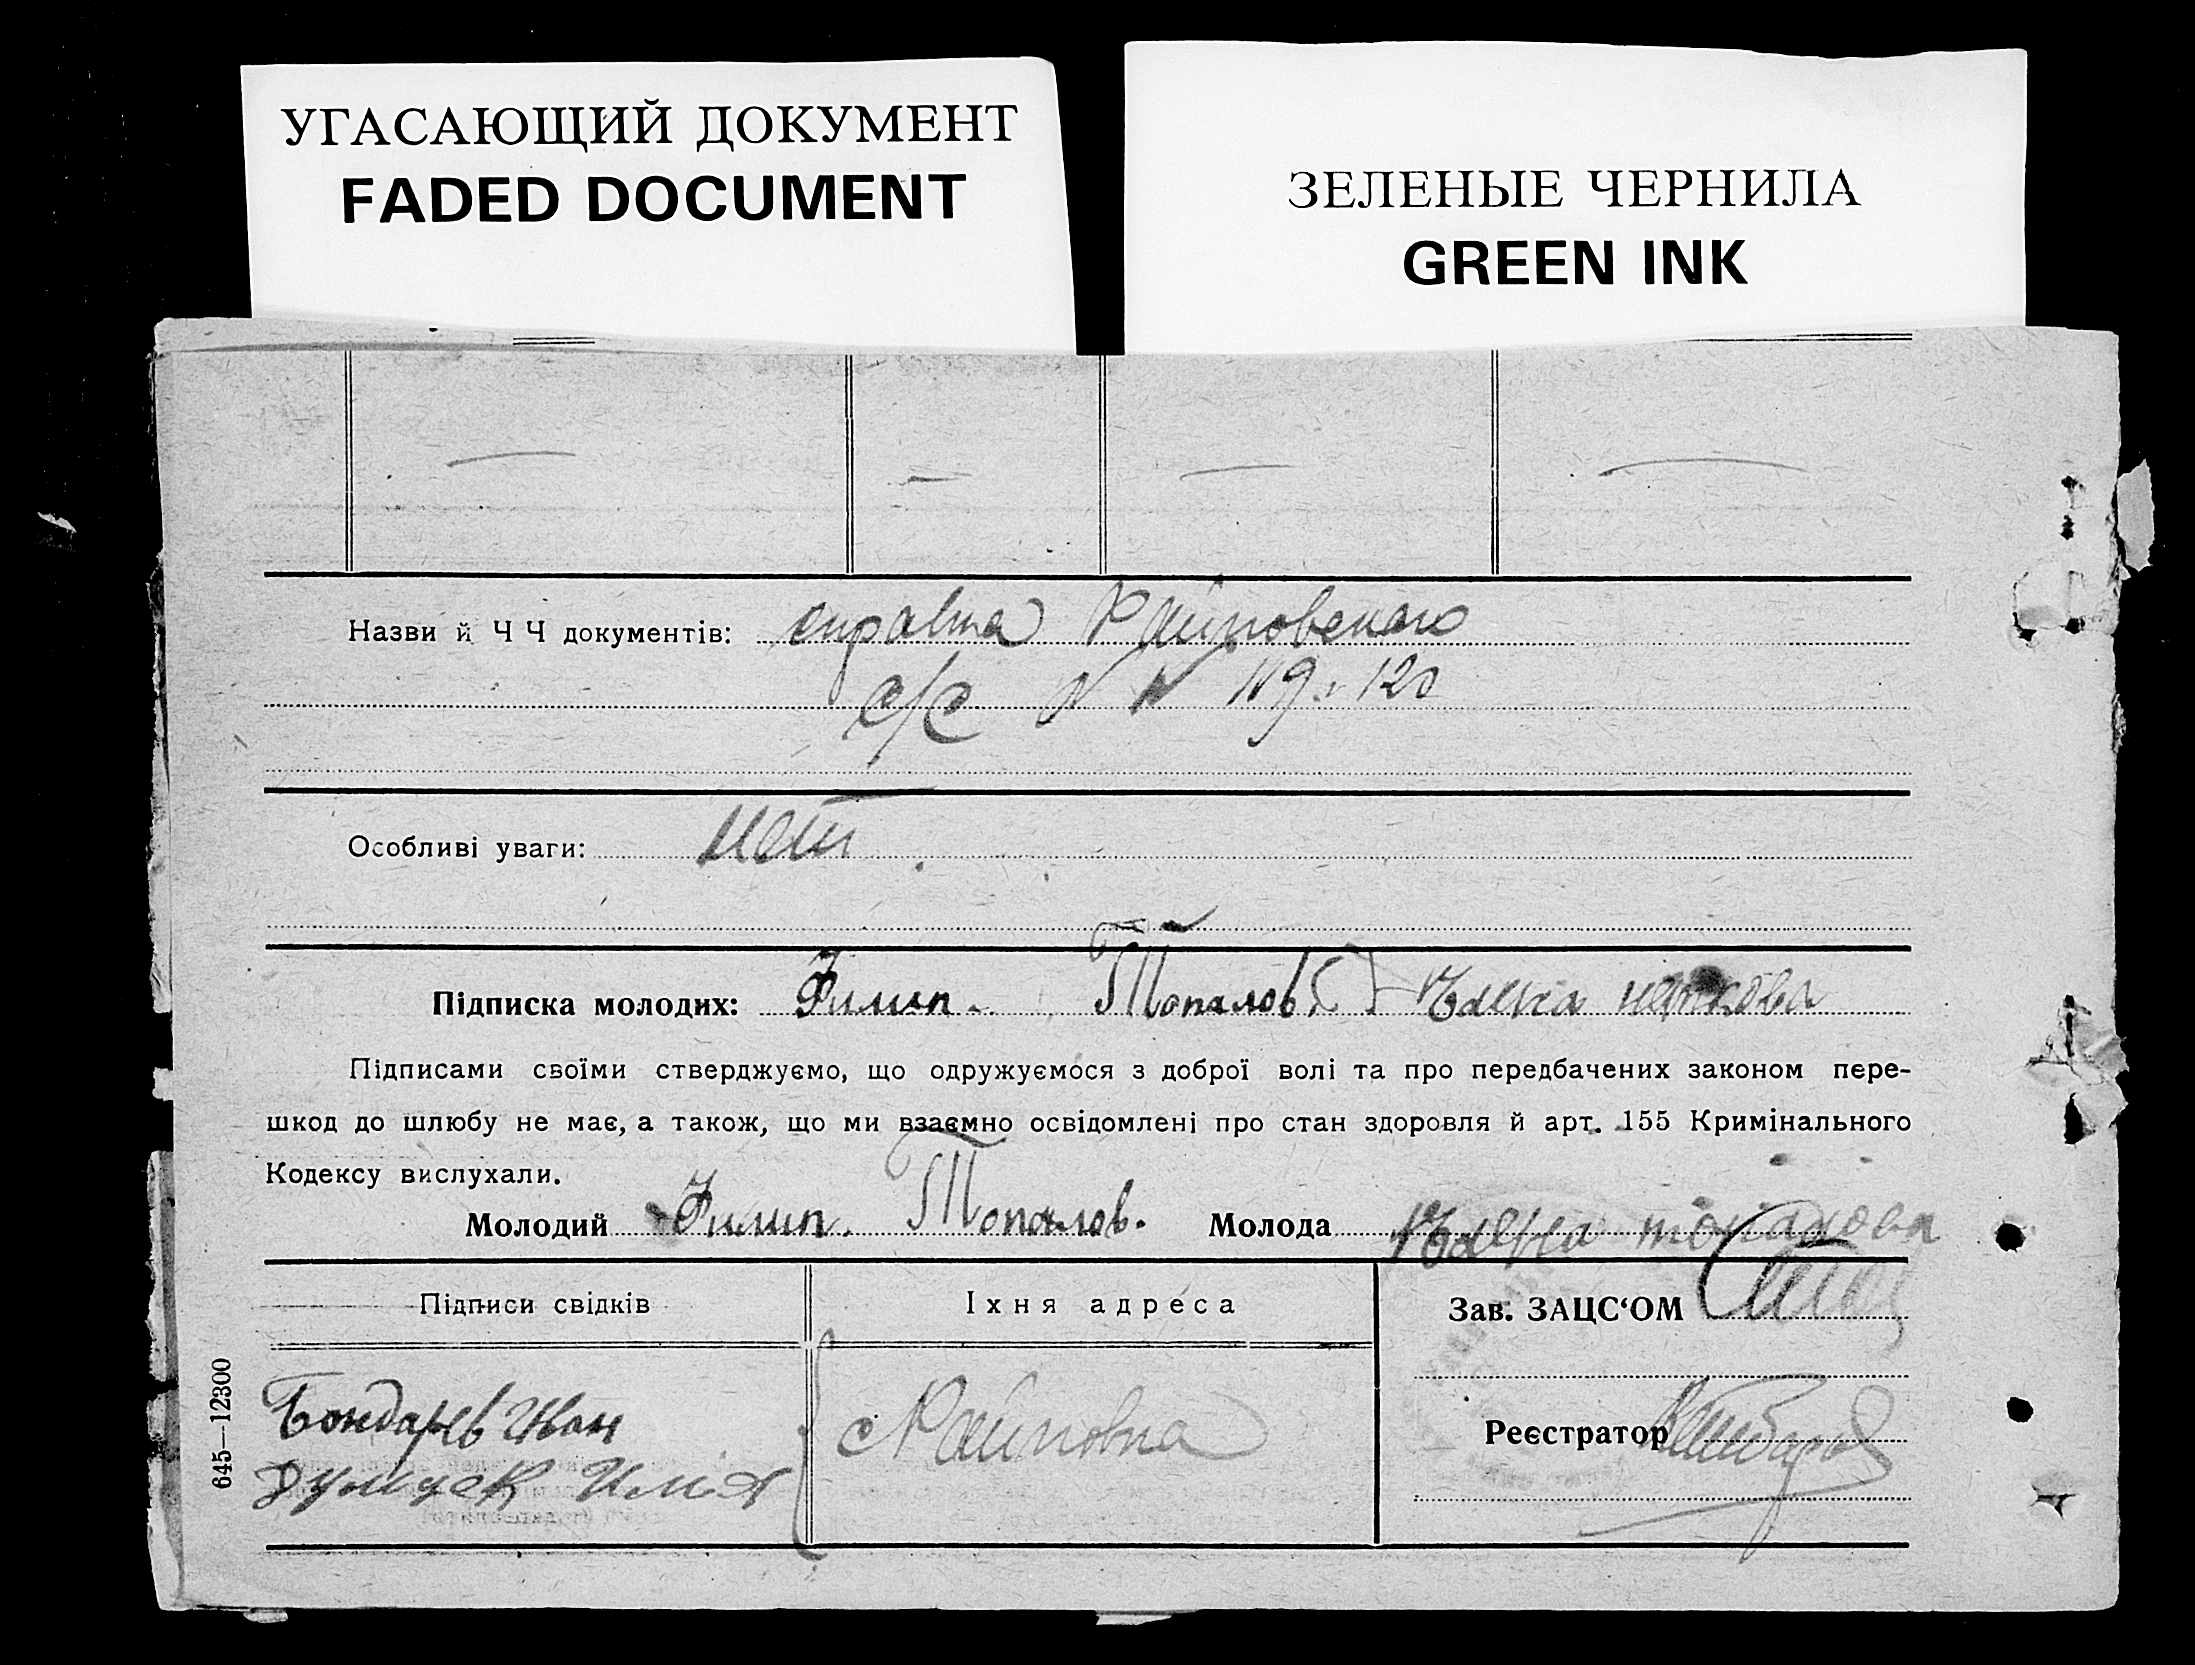 УГАСАЮЩИЙ ДОКУМЕНТ
FADED DOCUMENT
ЗЕЛЕНЫЕ ЧЕРНИЛА
GREEN INK
Назви й Ч Ч документів: справка Райновского
с/с N N 119 и 120
Особливі уваги: нет
Підписка молодих: Филип. Топалов Елена
Підписами своїми стверджуємо, що одружуємося з доброї волі та про передбачених законом пере-
шкод до шлюбу не має, а також, що ми взаємно освідомлені про стан здоровля й арт. 155 Кримінального
Кодексу вислухали.
Молодий Филип. Топалов. Молода Елена топалова
Підписи свідків
Їхня адреса
Зав. ЗАЦС‘ОМ
Бондарев Иван
с Райновка
Реєстратор
645—12300